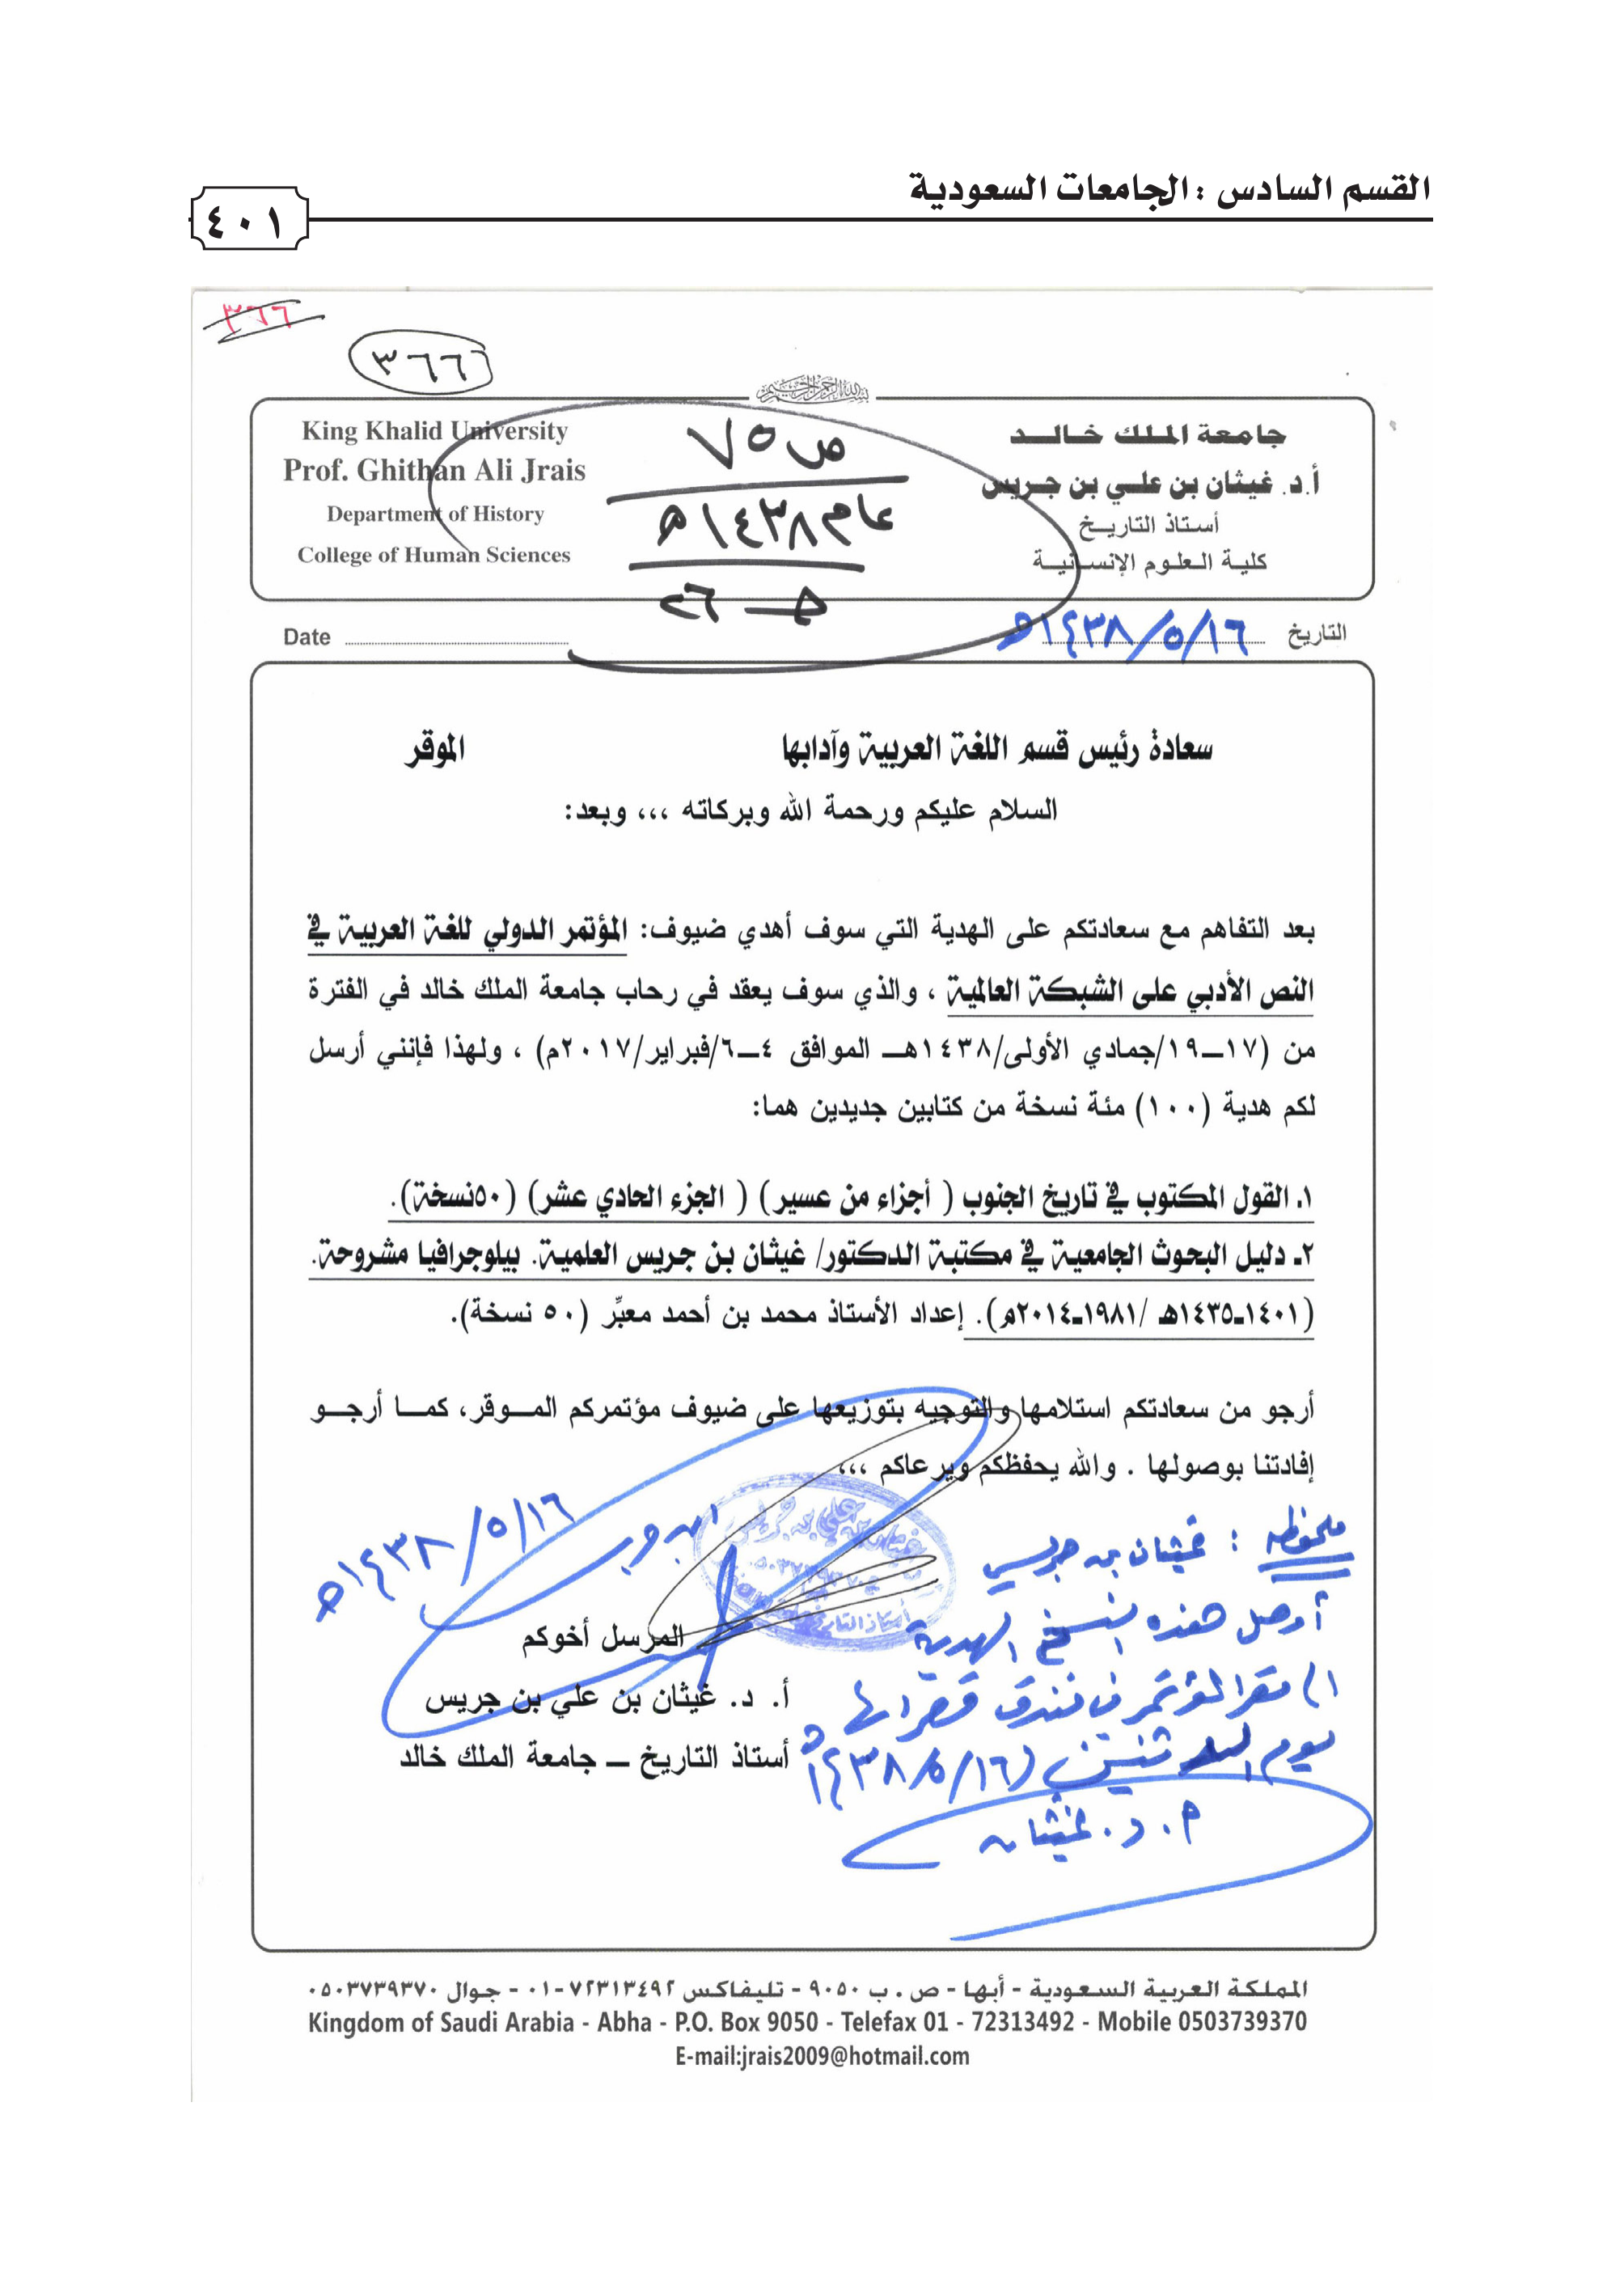 القسم السادس : الجامعات السعودية
٤٠١
٣٦٦
٣٦٦
بسم الله الرحمن الرحيم
جامعة الملك خالد
أ.د. غيثان بن علي بن جريس
أستاذ التاريخ
كلية العلوم الإنسانية
King Khalid University
Prof. Ghithan Ali Jrais
Department of History
College of Human Sciences
ص ٧٥
عام ١٤٣٨هـ
التاريخ ١٤٣٨/٥/١٦هـ
Date
سعادة رئيس قسم اللغة العربية وآدابها الموقر
السلام عليكم ورحمة الله وبركاته ،،، وبعد:
بعد التفاهم مع سعادتكم على الهدية التي سوف أهدي ضيوف: المؤتمر الدولي للغة العربية في
النص الأدبي على الشبكة العالمية ، والذي سوف يعقد في رحاب جامعة الملك خالد في الفترة
من (١٧–١٩/جمادي الأولى/١٤٣٨هـ الموافق ٤–٦/فبراير/٢٠١٧م) ، ولهذا فإنني أرسل
لكم هدية (١٠٠) مئة نسخة من كتابين جديدين هما:
١. القول المكتوب في تاريخ الجنوب ( أجزاء من عسير) ( الجزء الحادي عشر) (٥٠نسخة).
٢ـ دليل البحوث الجامعية في مكتبة الدكتور/ غيثان بن جريس العلمية. بيلوجرافيا مشروحة.
(١٤٠١ـ١٤٣٥هـ /١٩٨١ـ٢٠١٤م). إعداد الأستاذ محمد بن أحمد معبِّر (٥٠ نسخة).
أرجو من سعادتكم استلامها والتوجيه بتوزيعها على ضيوف مؤتمركم الموقر، كما أرجو
إفادتنا بوصولها . والله يحفظكم ويرعاكم ،،،
١٤٣٨/٥/١٦هـ
المرسل أخوكم
أ. د. غيثان بن علي بن جريس
أستاذ التاريخ – جامعة الملك خالد
ملحوظة : غيثان بن جريس
أوصل هذه النسخ الهدية
إلى مقر المؤتمر في فندق قصر
يوم (١٤٣٨/٥/١٦هـ
أ. د. غيثان
المملكة العربية السعودية - أبها - ص . ب ٩٠٥٠ - تليفاكس ٧٢٣١٣٤٩٢-٠١ - جوال ٠٥٠٣٧٣٩٣٧٠
Kingdom of Saudi Arabia - Abha - P.O. Box 9050 - Telefax 01 - 72313492 - Mobile 0503739370
E-mail:jrais2009@hotmail.com